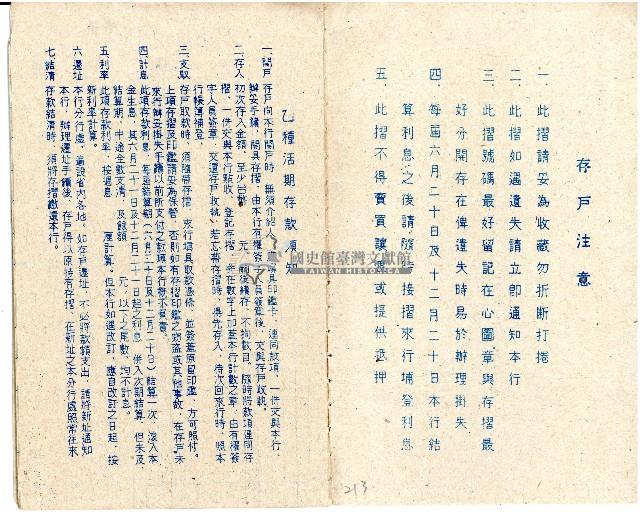 存戶注意
一 此摺請妥為收藏勿折斷打捲
二 此摺如遇遺失請立即通知本行
三 此摺號碼最好留記在心圖章與存摺最
好分開存在俾遺失時易於辦理掛失
四 每屆六月二十日及十二月二十日本行結
算利息之後請隨時接摺來行補登利息
五 此摺不得賣買讓與或提供抵押
乙種活期存款須知
一、開戶 存戶向本行開戶時，無須介紹人，填具印鑑卡，連同款項，一併交與本行
辦妥手續，開具存摺，由本行有權簽字人員簽章後，交與存戶收執。
二、存入 初次存入金額，至少台幣 元，嗣後續存，不拘數目，隨時將款項連同存
摺，一併交與本行點收，登記存摺，並在數字上加蓋本行計數之章，由有權簽
字人員簽章，交還存戶收執，若忘帶存摺時，得先存入，待次回來行時，照本
行帳簿補登。
三、支取 存戶取款時，須隨帶存摺，來行填具取款憑條，並簽蓋原留印鑑，方可照付。
上項存摺及印鑑請妥為保管，否則如有存摺印鑑之竊盜或其他事故，在存戶未
來行辦妥掛失手續以前所支付之數項本行概不負責。
四、計息 此項存款利息，每屆結算期（六月二十日及十二月二十日）結算一次，滾入本
金生息，其六月二十一日及十二月二十一日起之利息，併入次期結算，但未及
結算期，中途全數支清，及餘額 元，以下之尾數，均不計息。
五、利率 此項存款利率，按週息 厘計算。但本行如遇改訂，應自改訂之日起，按
新利率計算。
六、遷址 本行分行處，遍設省內各地，如存戶遷址，不必將款額支出，請將新址通知
本行，辦理遷址手續後，存戶得以原持有存摺，在新址之本分行處照常往來
七、結清 存款結清時，須將存摺繳還本行。
國史館臺灣文獻館
TAIWAN HISTORICA
213